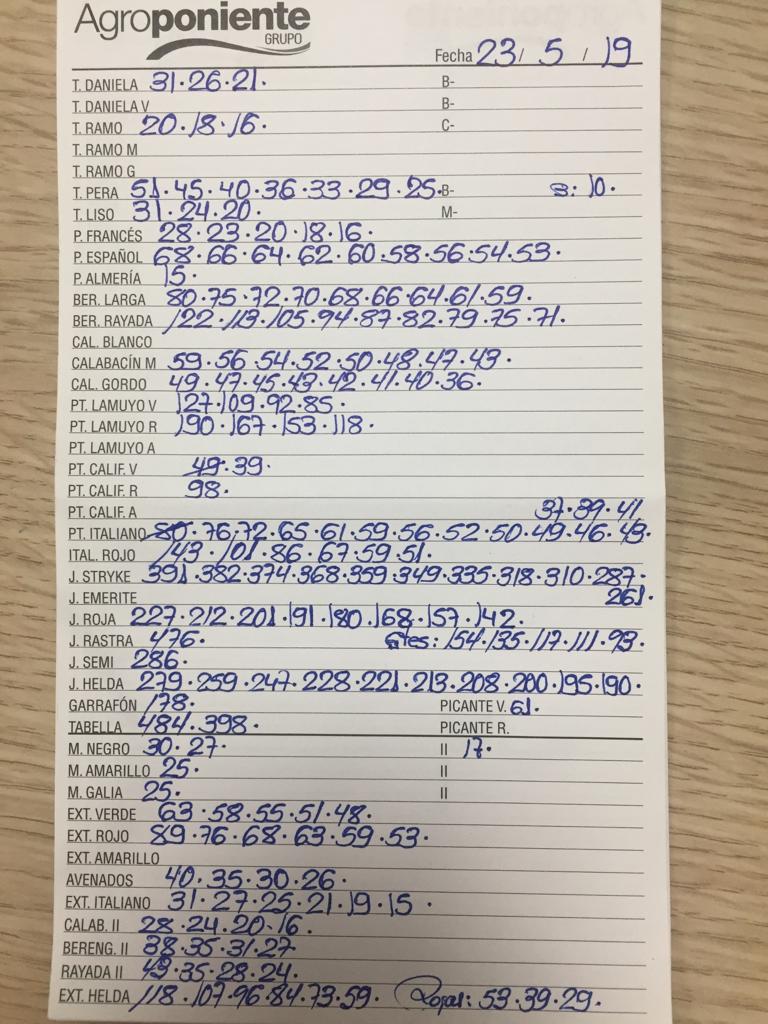 Agroponiente
GRUPO
Fecha 23/ 5 / 19
T. DANIELA 31·26·21· B-
T. DANIELA V B-
T. RAMO 20·18·16· C-
T. RAMO M
T. RAMO G
T. PERA 51·45·40·36·33·29·25· B- B: 10·
T. LISO 31·24·20· M-
P. FRANCÉS 28·23·20·18·16·
P. ESPAÑOL 68·66·64·62·60·58·56·54·53·
P. ALMERÍA 15·
BER. LARGA 80·75·72·70·68·66·64·61·59·
BER. RAYADA 122·113·105·94·87·82·79·75·71·
CAL. BLANCO
CALABACÍN M 59·56·54·52·50·48·47·43·
CAL. GORDO 49·47·45·43·42·41·40·36·
PT. LAMUYO V 127·109·92·85·
PT. LAMUYO R 190·167·153·118·
PT. LAMUYO A
PT. CALIF. V 49·39·
PT. CALIF. R 98·
PT. CALIF. A 37·39·41·
PT. ITALIANO 80·76·72·65·61·59·56·52·50·49·46·43·
ITAL. ROJO 143·101·86·67·59·51·
J. STRYKE 391·382·374·368·359·349·335·318·310·287·
J. EMERITE 261·
J. ROJA 227·212·201·191·180·168·157·142·
J. RASTRA 476· 154·135·117·111·93·
J. SEMI 286·
J. HELDA 279·259·247·228·221·213·208·200·195·190·
GARRAFÓN 178· PICANTE V. 61·
TABELLA 484·398· PICANTE R.
M. NEGRO 30·27· II 17·
M. AMARILLO 25· II
M. GALIA 25· II
EXT. VERDE 63·58·55·51·48·
EXT. ROJO 89·76·68·63·59·53·
EXT. AMARILLO
AVENADOS 40·35·30·26·
EXT. ITALIANO 31·27·25·21·19·15·
CALAB. II 28·24·20·16·
BERENG. II 38·35·31·27
RAYADA II 43·35·28·24·
EXT. HELDA 118·107·96·84·73·59· Rojas: 53·39·29·